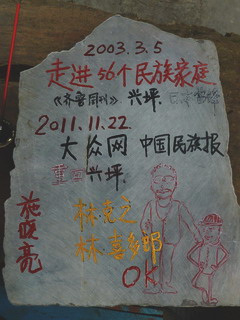 2003.3.5
走进56个民族家庭
《齐鲁周刊》兴坪
2011.11.22.
大众网 中国民族报
重 兴坪
施晓亮
林亮之
林喜乡
OK